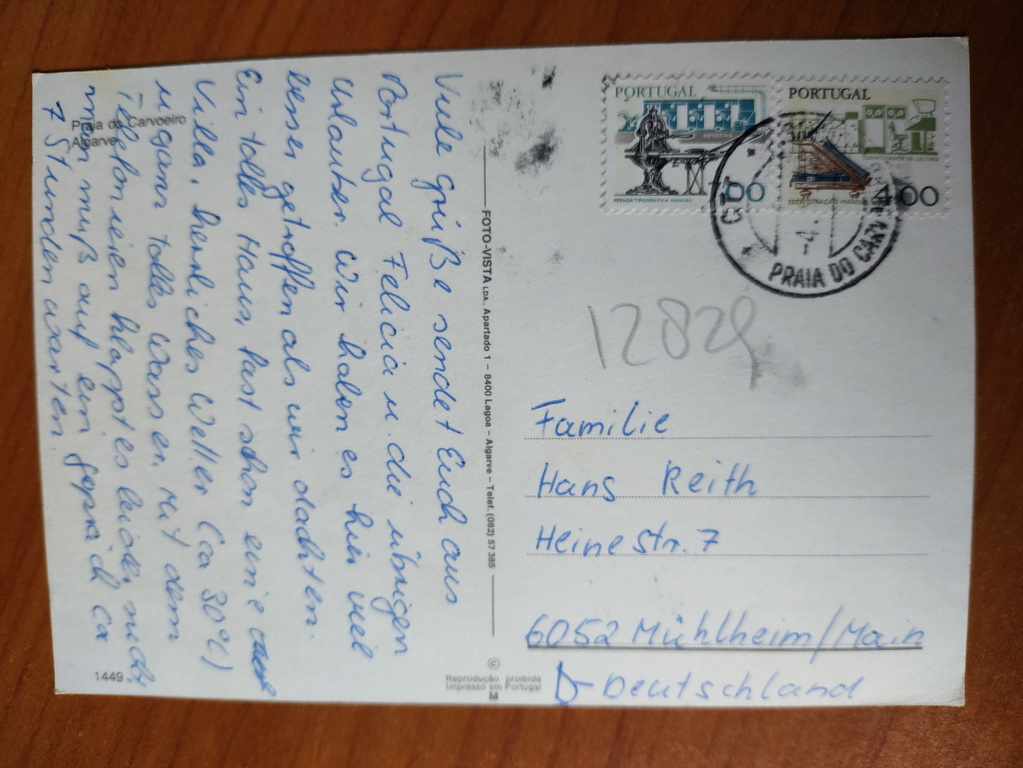 Praia do Carvoeiro
Algarve
Viele Grüße sendet Euch aus
Portugal Felicia u. die übrigen
Urlauber. Wir haben es hier viel
besser getroffen als wir dachten.
Ein tolles Haus, fast schon eine
Villa, herrliches Wetter (ca 30°C)
u ganz tolles Wasser. Mit dem
Telefonieren klappt es leider nicht,
man muß auf ein Gepräch ca
7 Stunden warten.
1449
FOTO-VISTA LDA. Apartado 1 - 8400 Lagoa - Algarve - Telef. (082) 57 385
©
Reprodução proibida
Impresso em Portugal
M
PORTUGAL
7.00
PRENSA TIPOGRÁFICA MANUAL
PORTUGAL
4.00
PRAIA DO CARVOEIRO
12829
Familie
Hans Reith
Heinestr. 7
6052 Mühlheim/Main
D Deutschland